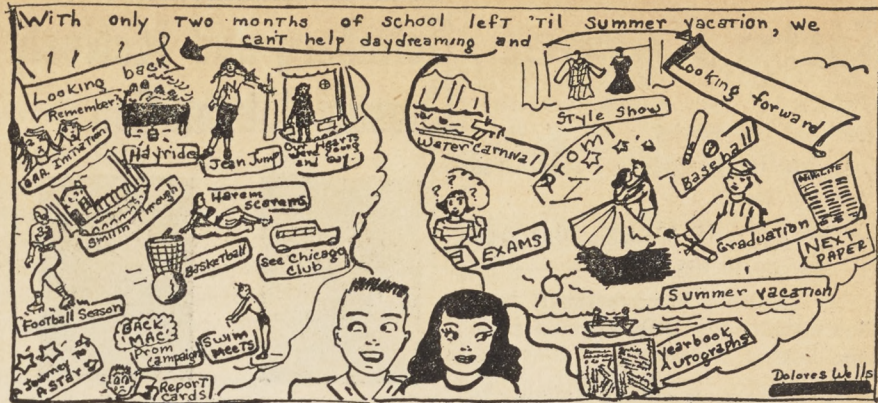 With only two months of school left 'til summer vacation, we
can't help daydreaming and
Looking back
Remember?
G.A.A. Initiation
Hayride
Jean Jump
Our Hearts
Were Young
and Gay
Smilin' Through
Harem
Scarems
Basketball
See Chicago
Club
Football Season
BACK
MAC
Prom
campaign
Swim
MEETS
A Journey TO
A STAR
Report
Cards
Looking forward
STYLE SHOW
Water Carnival
Prom
Baseball
? ? ?
EXAMS
Graduation
NEXT
PAPER
Summer vacation
Yearbook
Autographs
Dolores Wells